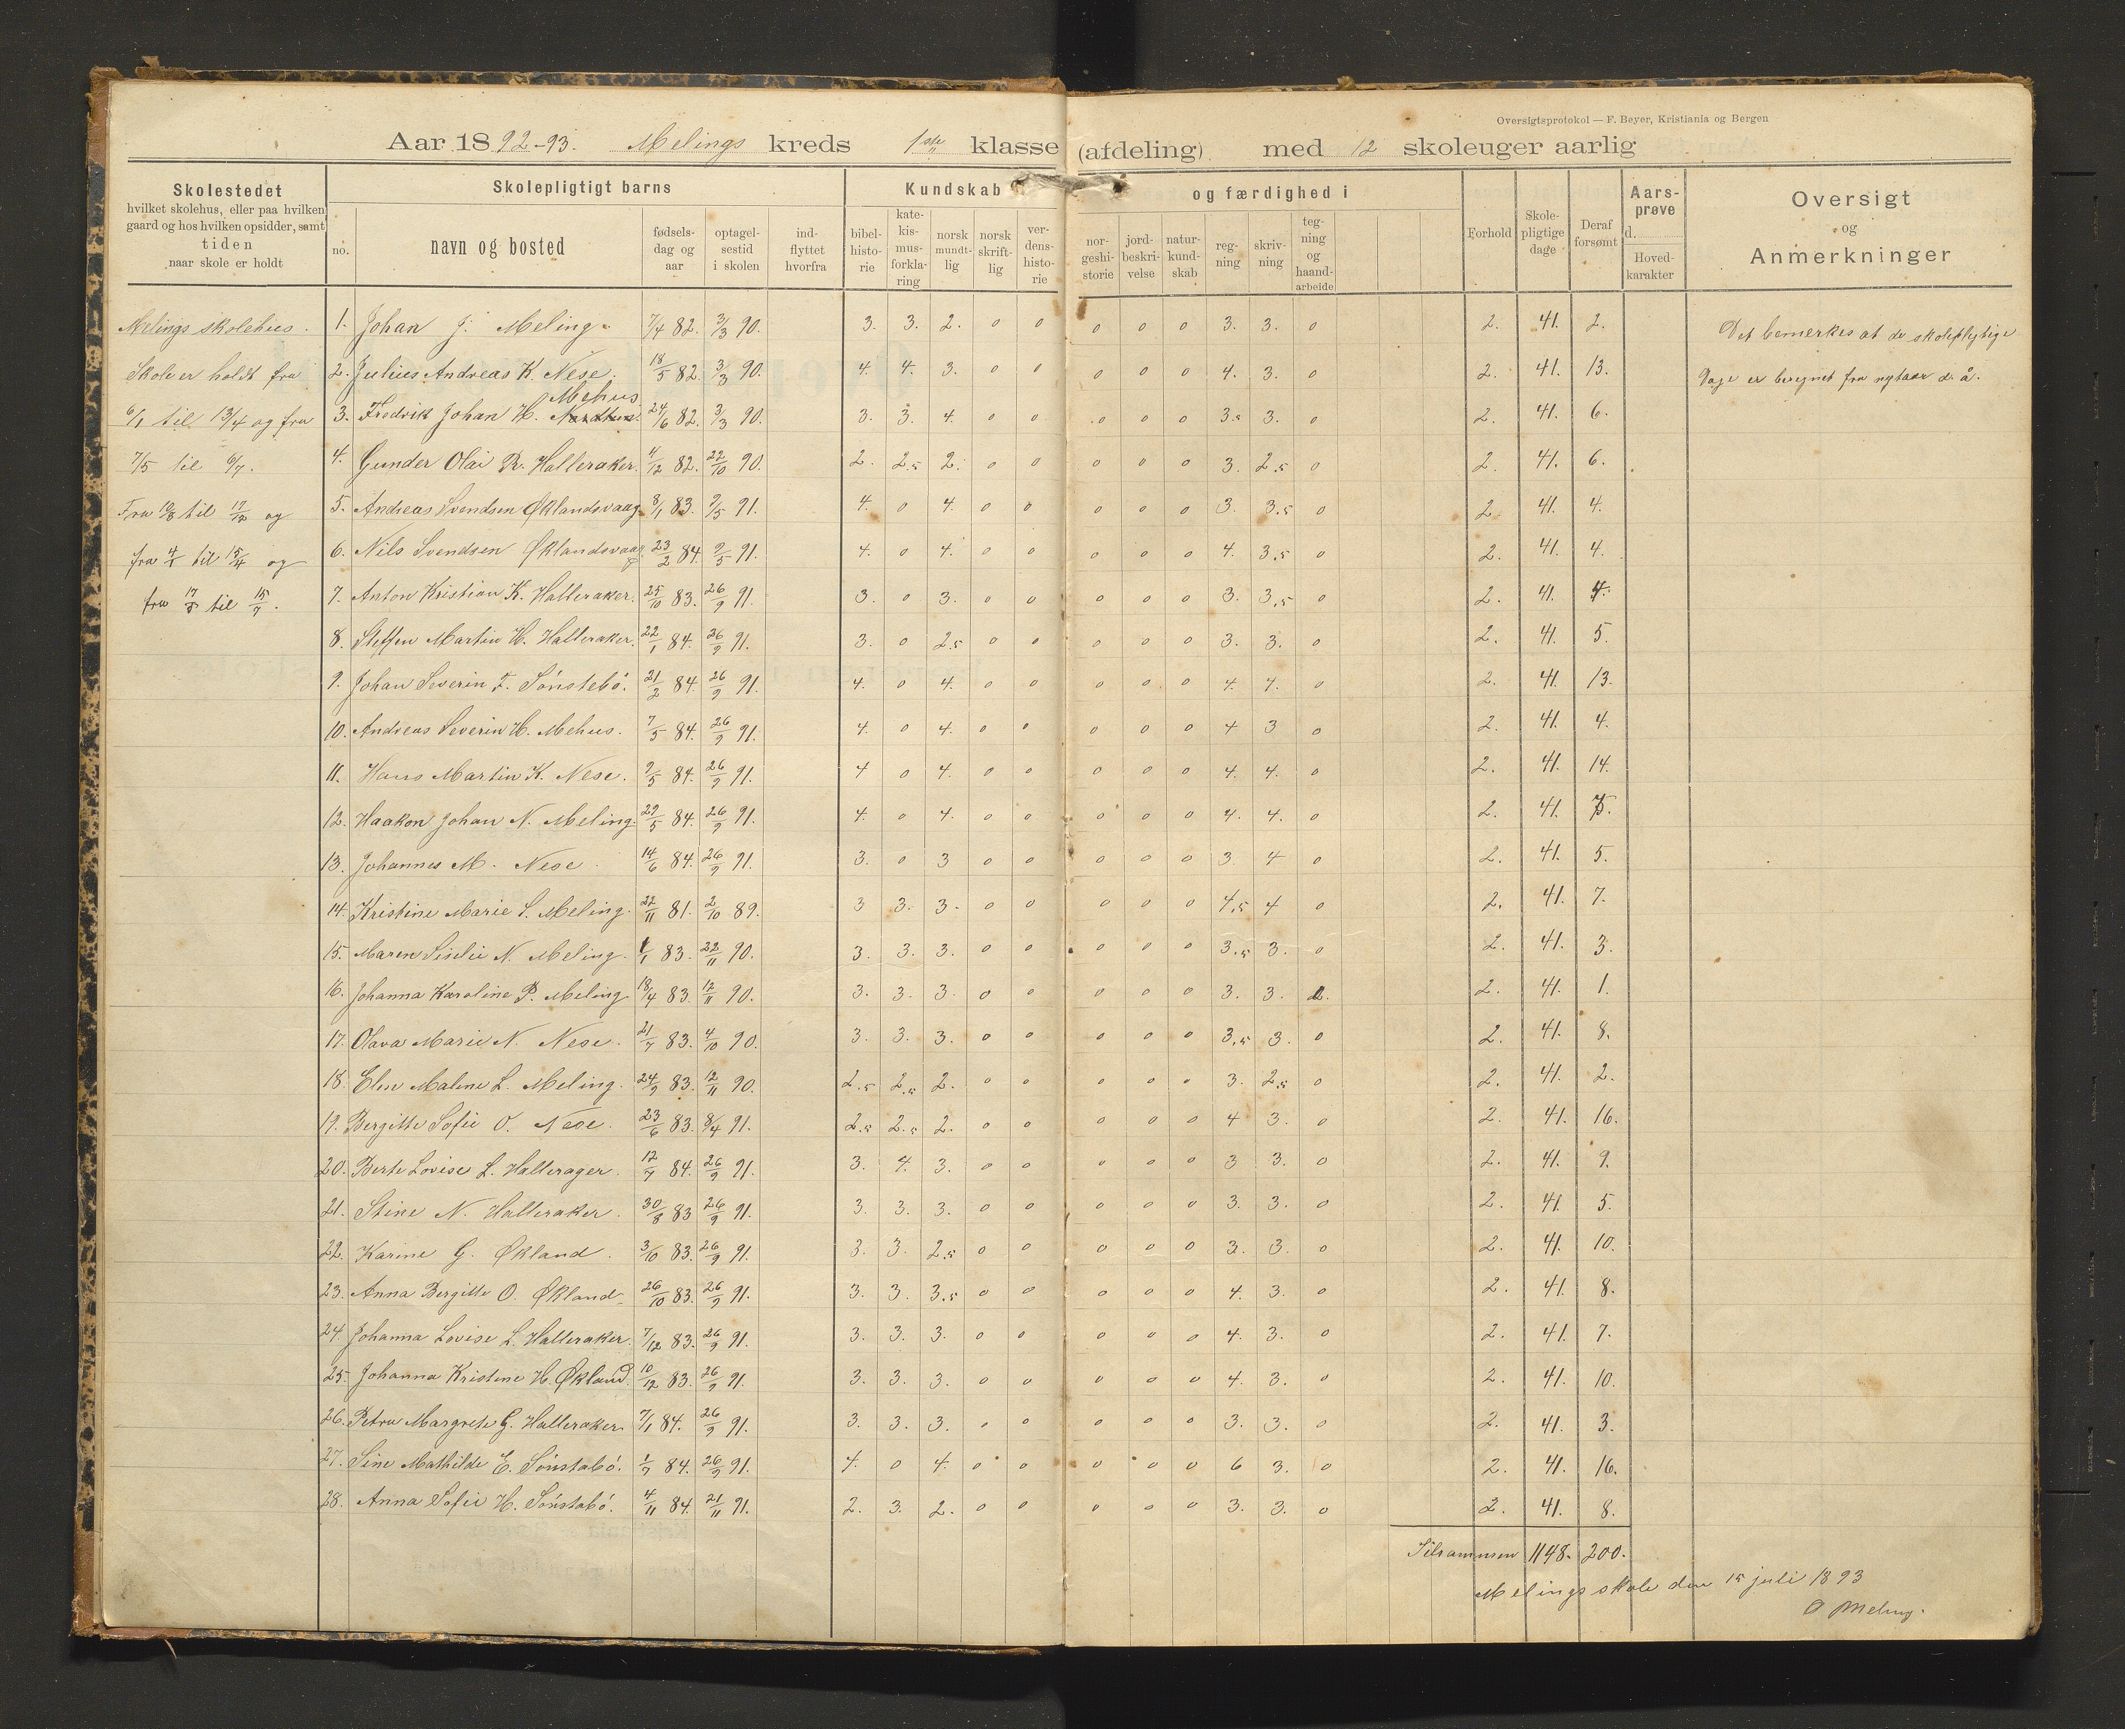 Oversigtsprotokol — F. Beyer, Kristiania og Bergen
Aar 1892-93. Melings kreds 1ste klasse (afdeling) med 12 skoleuger aarlig
Skolestedet
hvilket skolehus, eller paa hvilken
gaard og hos hvilken opsidder, samt
tiden
naar skole er holdt
Skolepligtigt barns
no.
navn og bosted
fødsels-
dag og
aar
optagel-
sestid
i skolen
ind-
flyttet
hvorfra
Kundskab og færdighed i
bibel-
histo-
rie
kate-
kis-
mus-
forkla-
ring
norsk
mundt-
lig
norsk
skrift-
lig
ver-
dens-
histo-
rie
nor-
geshi-
storie
jord-
beskri-
velse
natur-
kund-
skab
reg-
ning
skriv-
ning
teg-
ning
og
haand-
arbeide
Forhold
Skole-
pligtige
dage
Deraf
forsømt
Aars-
prøve
d.
Hoved-
karakter
Oversigt
og
Anmerkninger
Melings skolehus.
Skole er holdt fra
6/1 til 13/4 og fra
7/5 til 6/7.
Fra 10/8 til 17/12 og
fra 4/1 til 15/4 og
fra 17/5 til 15/7.
1. Johan J. Meling. 7/4 82. 3/3 90. 3. 3. 2. 0 0 0 0 0 3. 3. 0 2. 41. 2.
2. Julius Andreas K. Nese. 18/5 82. 3/3 90. 4. 4. 3. 0 0 0 0 0 4. 3. 0 2. 41. 13.
Mehus
3. Fredrik Johan H. 24/6 82. 3/3 90. 3. 3. 4. 0 0 0 0 0 3.5 3. 0 2. 41. 6.
4. Gunder Olai R. Halleraker. 4/12 82. 22/10 90. 2. 2.5 2. 0 0 0 0 0 3. 2.5 0 2. 41. 6.
5. Andreas Svendsen Øklandsvaag 8/1 83. 9/5 91. 4. 0 4. 0 0 0 0 0 3. 3.5 0 2. 41. 4.
6. Nils Svendsen Øklandsvaag 23/2 84. 9/5 91. 4. 0 4. 0 0 0 0 0 4. 3.5 0 2. 41. 4.
7. Anton Kristian K. Halleraker. 25/10 83. 26/9 91. 3. 0 3. 0 0 0 0 0 3. 3.5 0 2. 41. 4.
8. Steffen Martin H. Halleraker. 22/1 84. 26/9 91. 3. 0 2.5 0 0 0 0 0 3. 3. 0 2. 41. 5.
9. Johan Severin F. Sönstebö. 21/2 84. 26/9 91. 4. 0 4. 0 0 0 0 0 4. 4. 0 2. 41. 13.
10. Andreas Severin H. Mehus. 7/5 84. 26/9 91. 4. 0 4. 0 0 0 0 0 4 3 0 2. 41. 4.
11. Hans Martin K. Nese. 9/5 84. 26/9 91. 4 0 4. 0 0 0 0 0 4. 4. 0 2. 41. 14.
12. Haakon Johan N. Meling. 29/5 84. 26/9 91. 4. 0 4. 0 0 0 0 0 4. 4. 0 2. 41.
13. Johannes M. Nese. 14/6 84. 26/9 91. 3. 0 3 0 0 0 0 0 3. 4 0 2. 41. 5.
14. Kristine Marie S. Meling. 22/11 81. 2/10 89. 3 3. 3. 0 0 0 0 0 4.5 4 0 2. 41. 7.
15. Maren Siselie N. Meling. 1/1 83. 22/11 90. 3. 3. 3. 0 0 0 0 0 3.5 3. 0 2. 41. 3.
16. Johanna Karoline P. Meling 18/4 83. 12/11 90. 3. 3. 3. 0 0 0 0 0 3. 3. 2. 41. 1.
17. Olava Marie N. Nese. 21/7 83. 4/10 90. 3. 3. 3. 0 0 0 0 0 3.5 3. 0 2. 41. 8.
18. Elen Malene L. Meling. 24/9 83. 12/11 90. 2.5 2.5 2. 0 0 0 0 0 3. 2.5 0 2. 41. 2.
19. Bergitte Sofie O. Nese. 23/6 83. 8/4 91. 2.5 2.5 2. 0 0 0 0 0 4 3. 0 2. 41. 16.
20. Berte Lovise L. Hallerager. 12/7 84. 26/9 91. 3. 4. 3. 0 0 0 0 0 3 3. 0 2. 41. 9.
21. Stine N. Halleraker. 30/8 83 26/9 91. 3. 3. 3. 0 0 0 0 0 3. 3. 0 2. 41. 5.
22. Karine G. Økland. 3/10 83. 26/9 91. 3. 3. 2.5 0 0 0 0 0 3. 3. 0 2. 41. 10.
23. Anna Bergitte O. Økland. 26/10 83. 26/9 91. 3. 3. 3.5 0 0 0 0 0 4. 3. 0 2. 41. 8.
24. Johanna Lovise L. Halleraker. 7/12 83. 26/9 91. 3. 3. 3. 0 0 0 0 0 4. 3. 0 2. 41. 7.
25. Johanna Kristine H. Økland. 10/12 83. 26/9 91. 3. 3. 3. 0 0 0 0 0 4. 3. 0 2. 41. 10.
26. Petra Margrete G. Halleraker. 7/1 84. 26/9 91. 3. 3. 3. 0 0 0 0 0 3. 3. 0 2. 41. 3.
27. Sine Mathilde E. Sönstabö. 1/7 84. 26/9 91. 4. 0 4. 0 0 0 0 0 6 3. 0 2. 41. 16.
28. Anna Sofie H. Sönstabö. 4/11 84. 21/11 91. 2. 3. 2. 0 0 0 0 0 3. 3. 0 2. 41. 8.
Det bemerkes at de skoleplygtige
Dage er beregnet fra nytaar d. å.
Tilsammen 1148. 200.
Melings skole den 15 juli 1893
O. Meling.